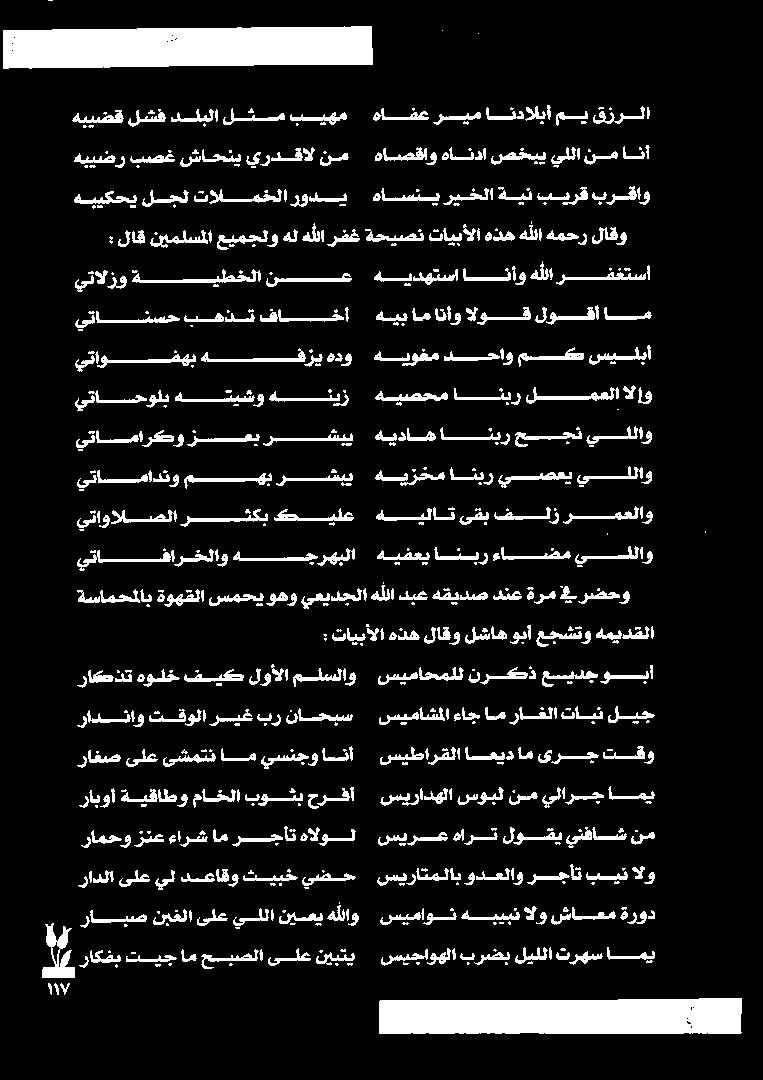 الرزق يم أبلادنا مير عفاه مهيب مثل البلد فشل قضيبه
أنا من اللي يبخص ادناه واقصاه من لاقدري ينحاش غصب رضيبه
واقرب قريب نية الخير ينساه يدور الخملات لجل يحكيبه
وقال رحمه الله هذه الأبيات نصيحة غفر الله له ولجميع المسلمين قال :
أستغفر الله وأنا استهديه عن الخطية وزلاتي
ما أقول قولا وأنا ما بيه أخاف تذهب حسناتي
أبليس كم واحد مغويه وده يزفه بهفواتي
وإلا العمل ربنا محصيه زينه وشيته بلوحاتي
واللي نجح ربنا هاديه يبشر بعز وكراماتي
واللي يعصي ربنا مخزيه يبشر بهم وندامتي
والعمر زلف بقى تاليه عليك بكثر الصلاواتي
واللي مضاء ربنا يعفيه البهرجه والخرافاتي
وحضر في مرة عند صديقه عبد الله الجديعي وهو يحمس القهوة بالمحماسة
القديمه وتشجع أبو هاشل وقال هذه الأبيات :
أبو جديع ذكرن للمحاميس والسلم الأول كيف خلوه تذكار
جيل نبات الغار ما جاء المشاميس سبحان رب غير الوقت واندار
وقت جرى ما ديعا القراطيس أنا وجنسي ما نتمشى على صغار
يما جرالي من لبوس الهداريس أفرح بثوب الخام وطاقية أوبار
من شافني يقول تراه عريس لولاه تأجر ما شراء عنز وحمار
ولا نيب تأجر والعدو بالمتاريس حضي خبيث وقاعد لي على الدار
دورة معاش ولا نبيبه نواميس والله يعين اللي على الغبن صبار
يما سهرت الليل بضرب الهواجيس يتبين على الصبح ما جيت بفكار
١١٧